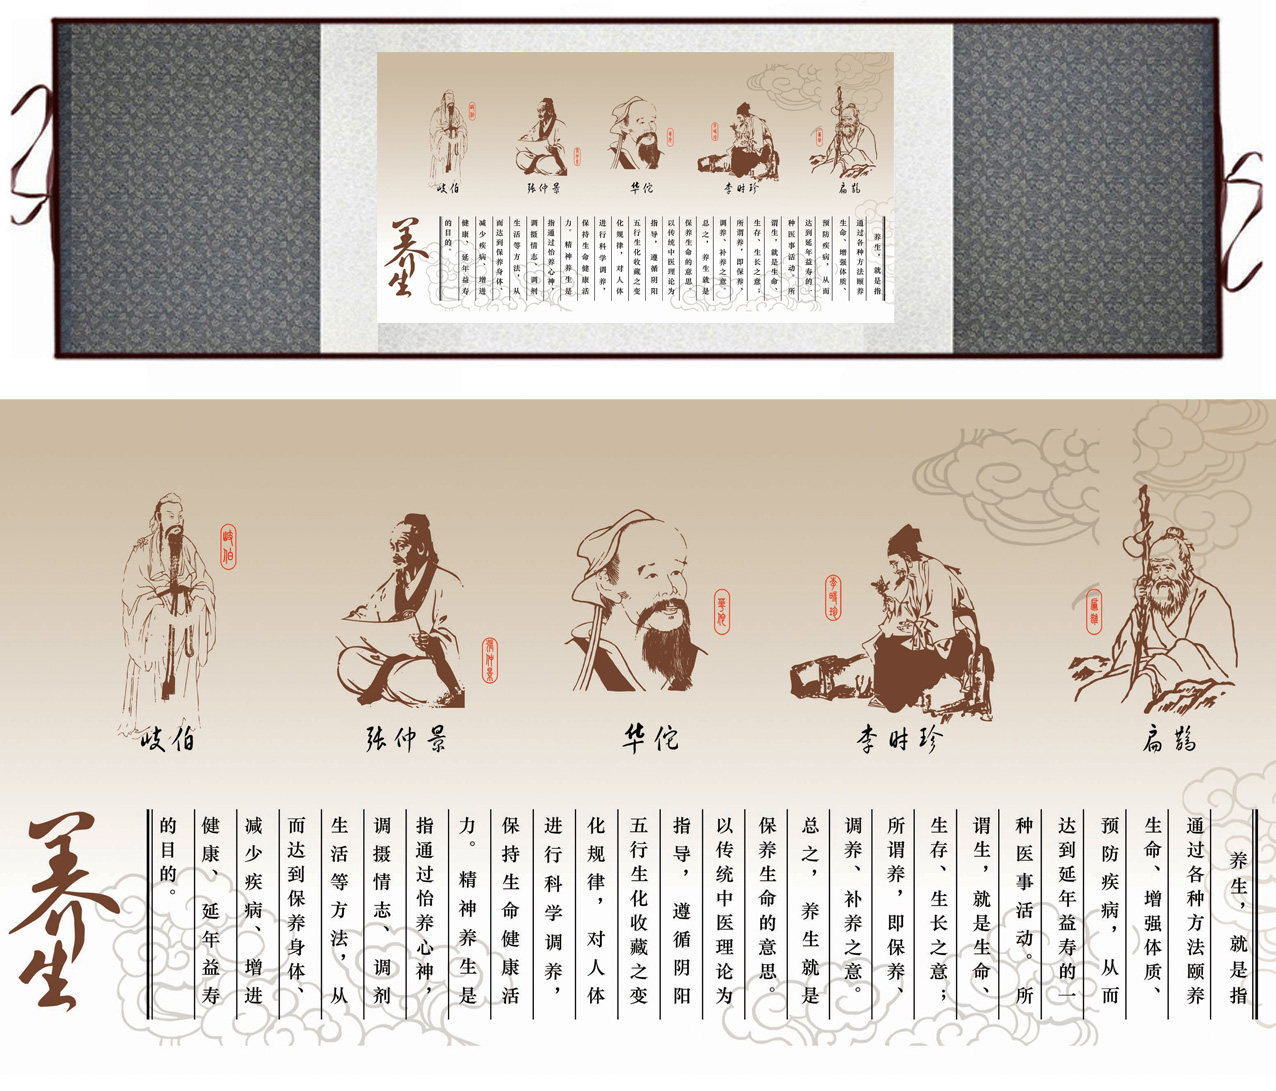 岐伯
张仲景
华佗
李时珍
扁鹊
养生
养生，就是指
通过各种方法颐养
生命、增强体质、
预防疾病，从而
达到延年益寿的一
种医事活动。所
谓生，就是生命、
生存、生长之意；
所谓养，即保养、
调养、补养之意。
总之，养生就是
保养生命的意思。
以传统中医理论为
指导，遵循阴阳
五行生化收藏之变
化规律，对人体
进行科学调养，
保持生命健康活
力。精神养生是
指通过怡养心神，
调摄情志、调剂
生活等方法，从
而达到保养身体、
减少疾病、增进
健康、延年益寿
的目的。
岐伯
岐伯
张仲景
張仲景
华佗
華佗
李时珍
李時珍
扁鹊
扁鵲
养生
养生，就是指
通过各种方法颐养
生命、增强体质、
预防疾病，从而
达到延年益寿的一
种医事活动。所
谓生，就是生命、
生存、生长之意；
所谓养，即保养、
调养、补养之意。
总之，养生就是
保养生命的意思。
以传统中医理论为
指导，遵循阴阳
五行生化收藏之变
化规律，对人体
进行科学调养，
保持生命健康活
力。精神养生是
指通过怡养心神，
调摄情志、调剂
生活等方法，从
而达到保养身体、
减少疾病、增进
健康、延年益寿
的目的。